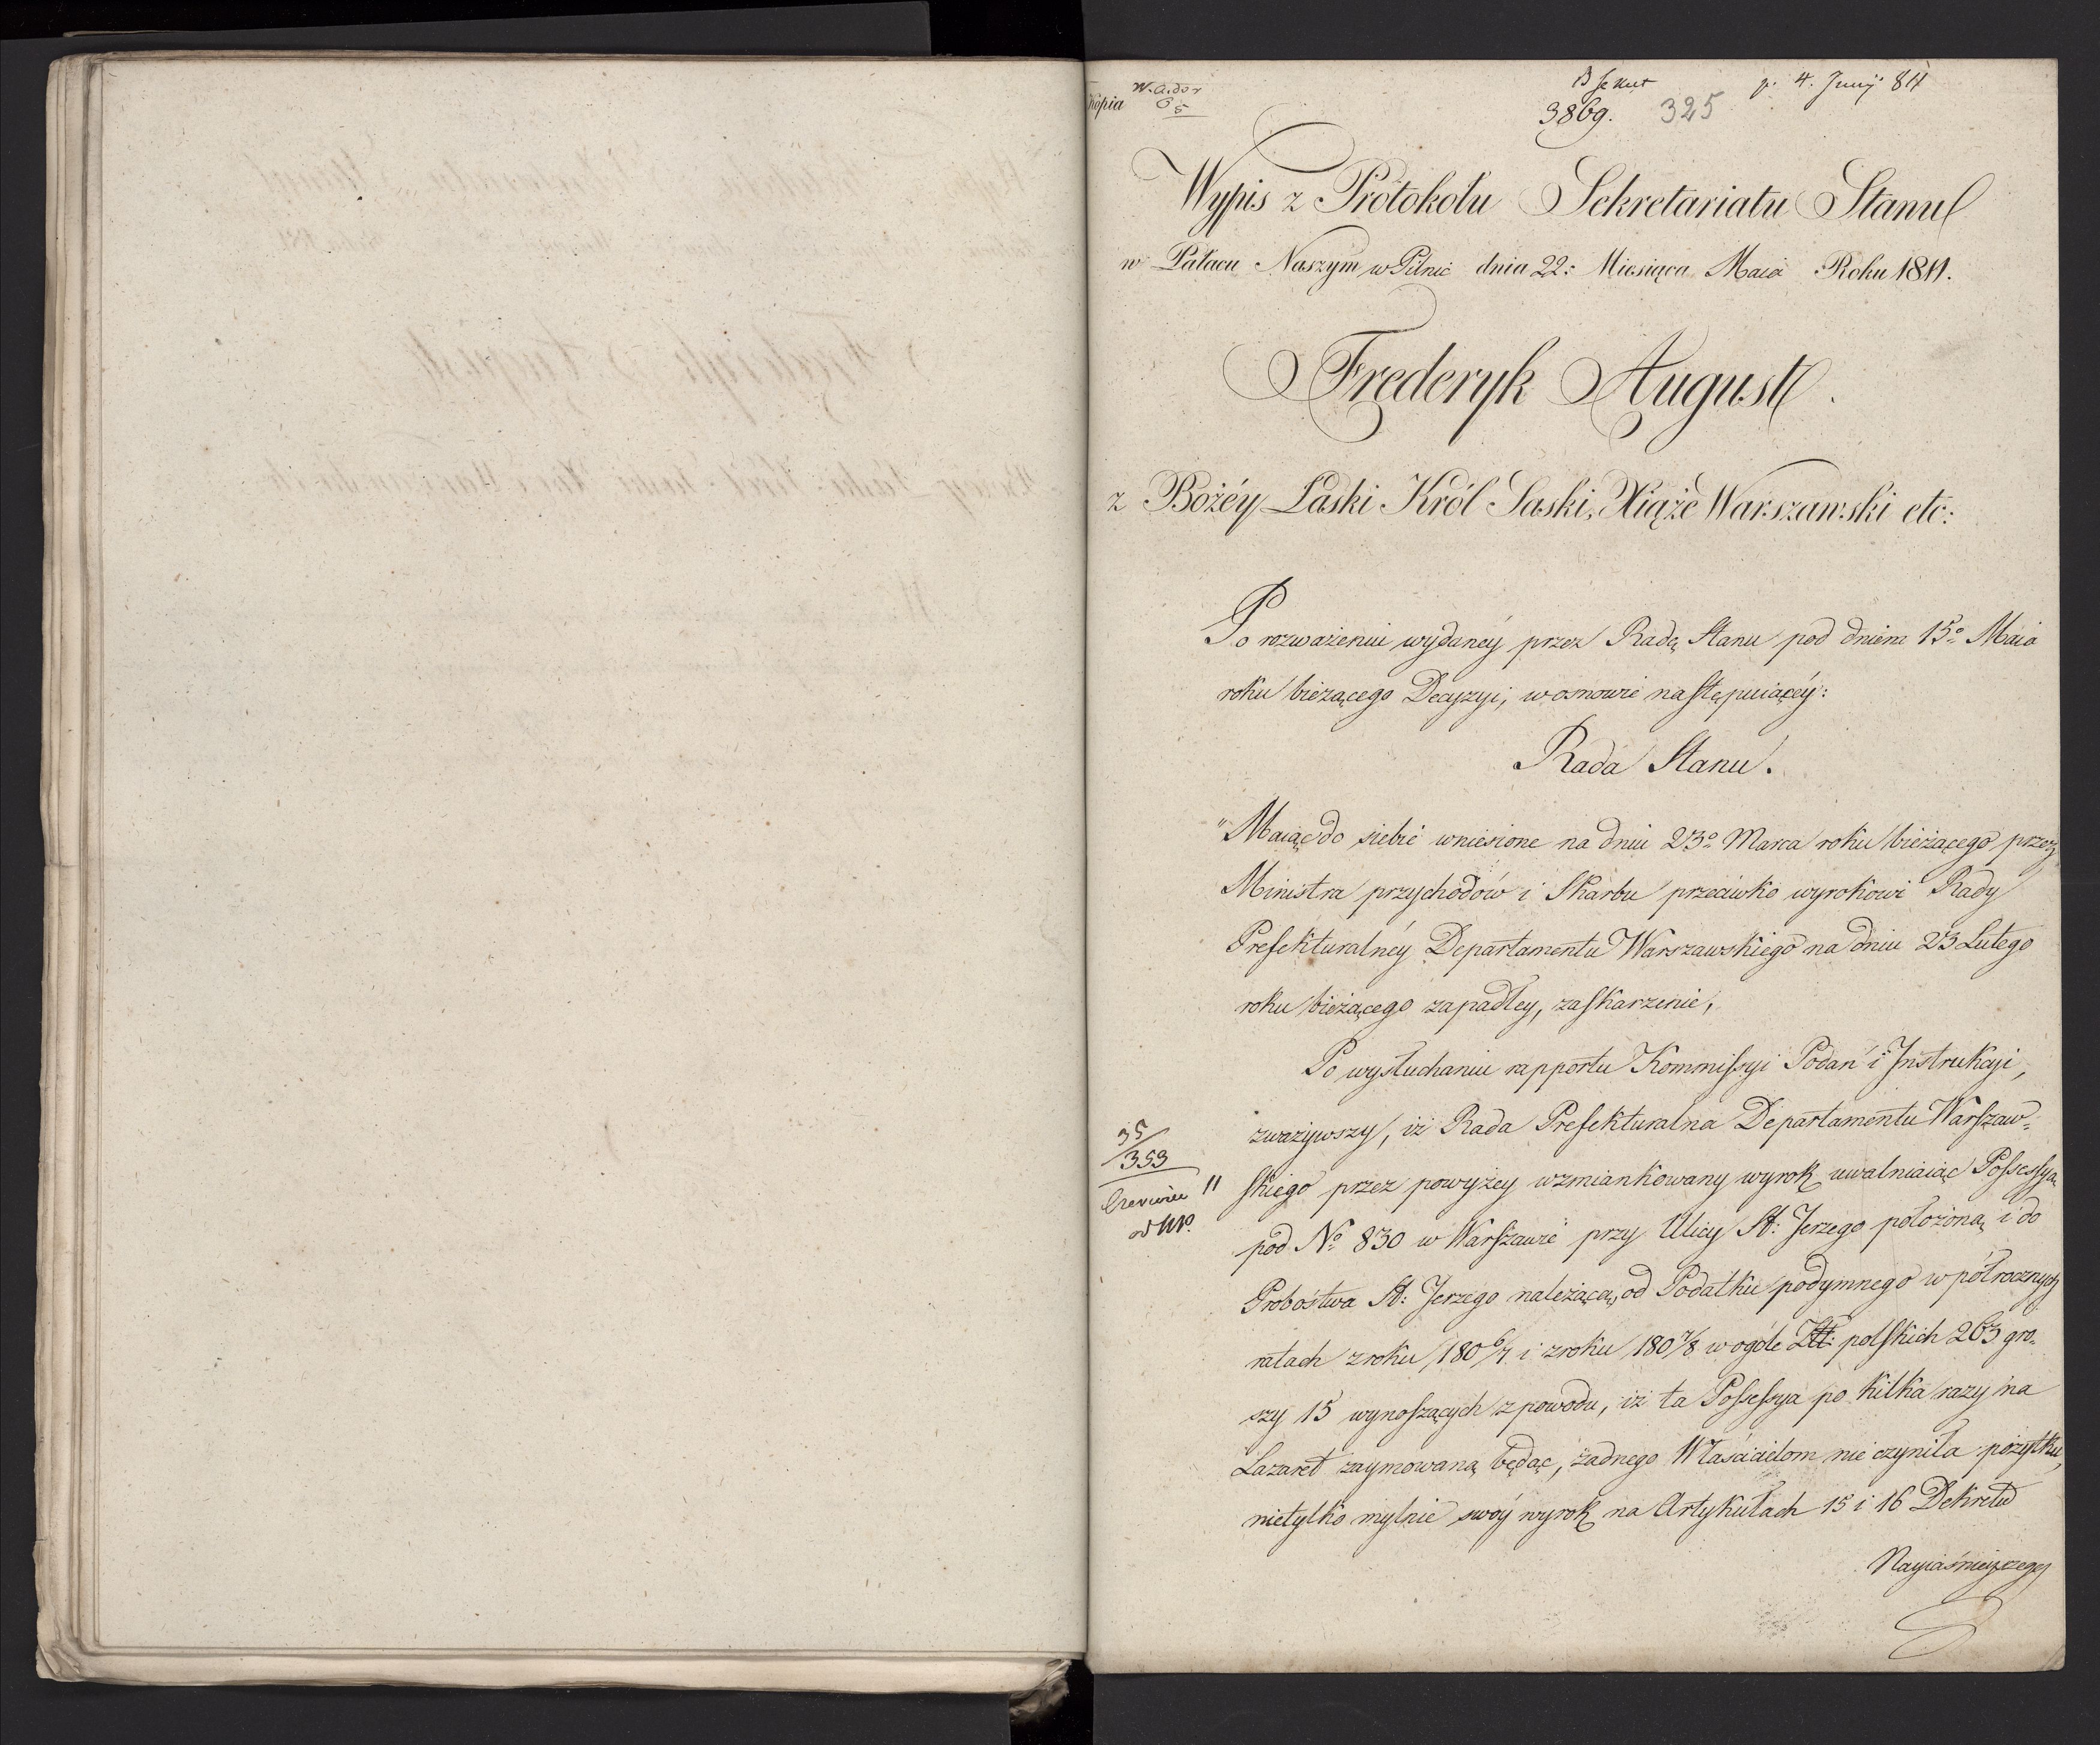 Kopia
3869. 325
p. 4. Junij 811
Wypis z Protokołu Sekretariatu Stanu
w Pałacu Naszym w Pilnic dnia 22: Miesiąca Maia Roku 1811.
Frederyk August.
z Bożéy Łaski Król Saski, Xiąże Warszawski etc:
Po rozważeniu wydanéy przez Radę Stanu pod dniem 15º Maia
roku bieżącego Decyzyi, w osnowie następuiącéy:
Rada Stanu.
"Maiąc do siebie wniesione na dniu 23º Marca roku bieżącego przez
Ministra przychodów i Skarbu przeciwko wyrokowi Rady
Prefekturalnéy Departamentu Warszawskiego na dniu 23 Lutego
roku bieżącego zapadłey, zaskarzenie,
Po wysłuchaniu rapportu Kommissyi Podań i Instrukcyi,
zważywszy, iż Rada Prefekturalna Departamentu Warszaw-
skiego przez powyżey wzmiankowany wyrok uwalniaiąc Possessyą
pod Nº 830 w Warszawie przy Ulicy St: Jerzego położoną i do
Probostwa St: Jerzego należącą, od Podatku podymnego w półrocznych
ratach z roku 180 6/7 i z roku 180 7/8 w ogóle Złł: polskich 263 gro-
szy 15 wynoszących z powodu, iż ta Possessya po kilka razy na
Lazaret zaymowaną będąc, żadnego Właścicielom nie czyniła pożytku,
nietylko mylnie swóy wyrok na Artykułach 15 i 16 Dekretu
Nayiaśnieyszego
35/353
11